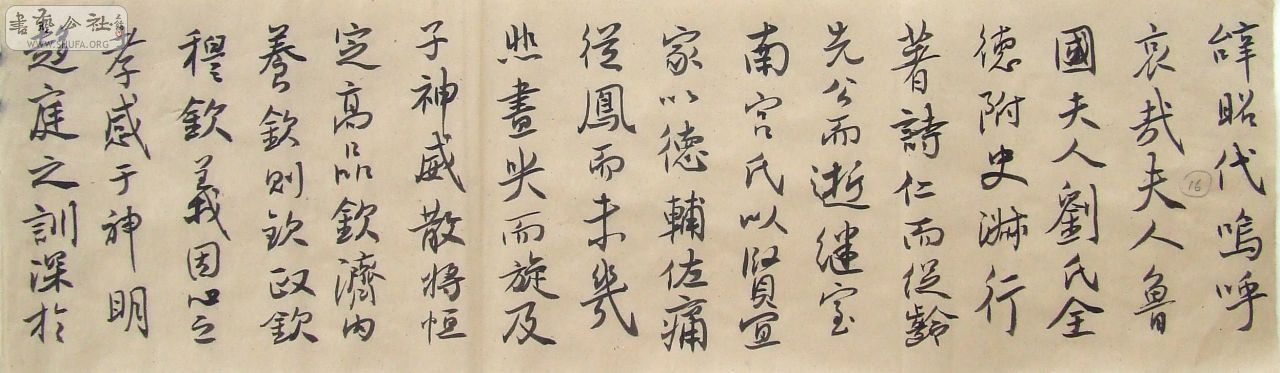 書藝公社
WWW.SHUFA.ORG
辭昭代嗚呼
哀哉夫人魯
16
國夫人劉氏全
德附史淑行
著詩仁而從齡
先公而逝繼室
南宮氏以賢宜
家以德輔佐痛
從鳳而未幾
悲晝哭而旋及
子神威散將恒
定高品欽濟內
養欽則欽政欽
穆欽義因心之
孝感于神明
趨庭之訓深於